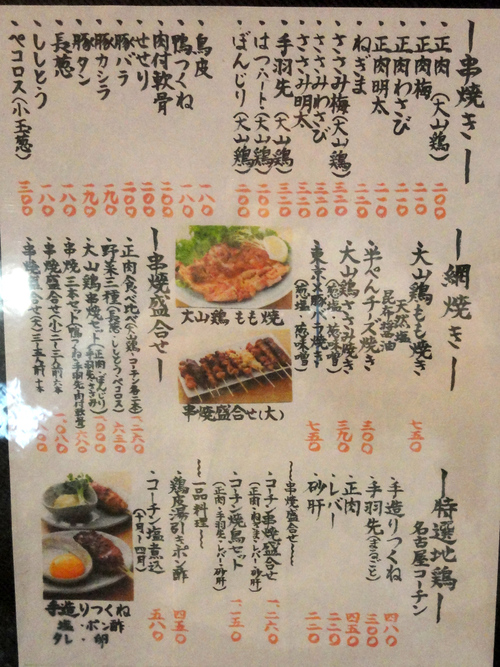 串焼き
・正肉(大山鶏) 二〇〇
・正肉梅
・正肉わさび
・正肉明太
・ねぎま
・ささみ梅(大山鶏)
・ささみわさび
・ささみ明太
・手羽先(大山鶏)
・はつ(ハート)(大山鶏) 二〇〇
・ぼんじり(大山鶏) 二〇〇
・鳥皮 一八〇
・鴨つくね 一八〇
・肉付軟骨 二〇〇
・せせり 二〇〇
・豚バラ
・豚カシラ 一九〇
・豚タン 一九〇
・長葱 一八〇
・ししとう 一八〇
・ペコロス(小玉葱) 三〇〇
網焼き
・大山鶏もも焼き 七五〇
天然塩
昆布醤油
・半ぺんチーズ焼き 三〇〇
・大山鶏ささみ焼き 三九〇
・東京X豚トラ焼き 七五〇
大山鶏 もも焼
串焼盛合せ(大)
串焼盛合せ
・正肉食べ比べ(大山鶏・コーチン各二本) 一、二六〇
・野菜三種(長葱・ししとう・ペコロス) 六三〇
・大山鶏串焼セット
・串焼三本セット
・串焼盛合せ(小)二~三人前六本 一、〇八〇
・串焼盛合せ(大)三~五人前十本
特選地鶏
名古屋コーチン
・手造りつくね 四八〇
・手羽先(まるごと) 三〇〇
・正肉 四五〇
・レバー 二一〇
・砂肝 二二〇
串焼盛合せ
・コーチン串焼盛合せ 一、二六〇
(正肉・ねぎま・レバー・砂肝)
・コーチン焼鳥セット 一、一五〇
(正肉・手羽先・レバー・砂肝)
一品料理
・鶏皮湯引きポン酢 四五〇
・コーチン塩煮込 五八〇
(十月~四月)
手造りつくね
塩・ポン酢
タレ・卵